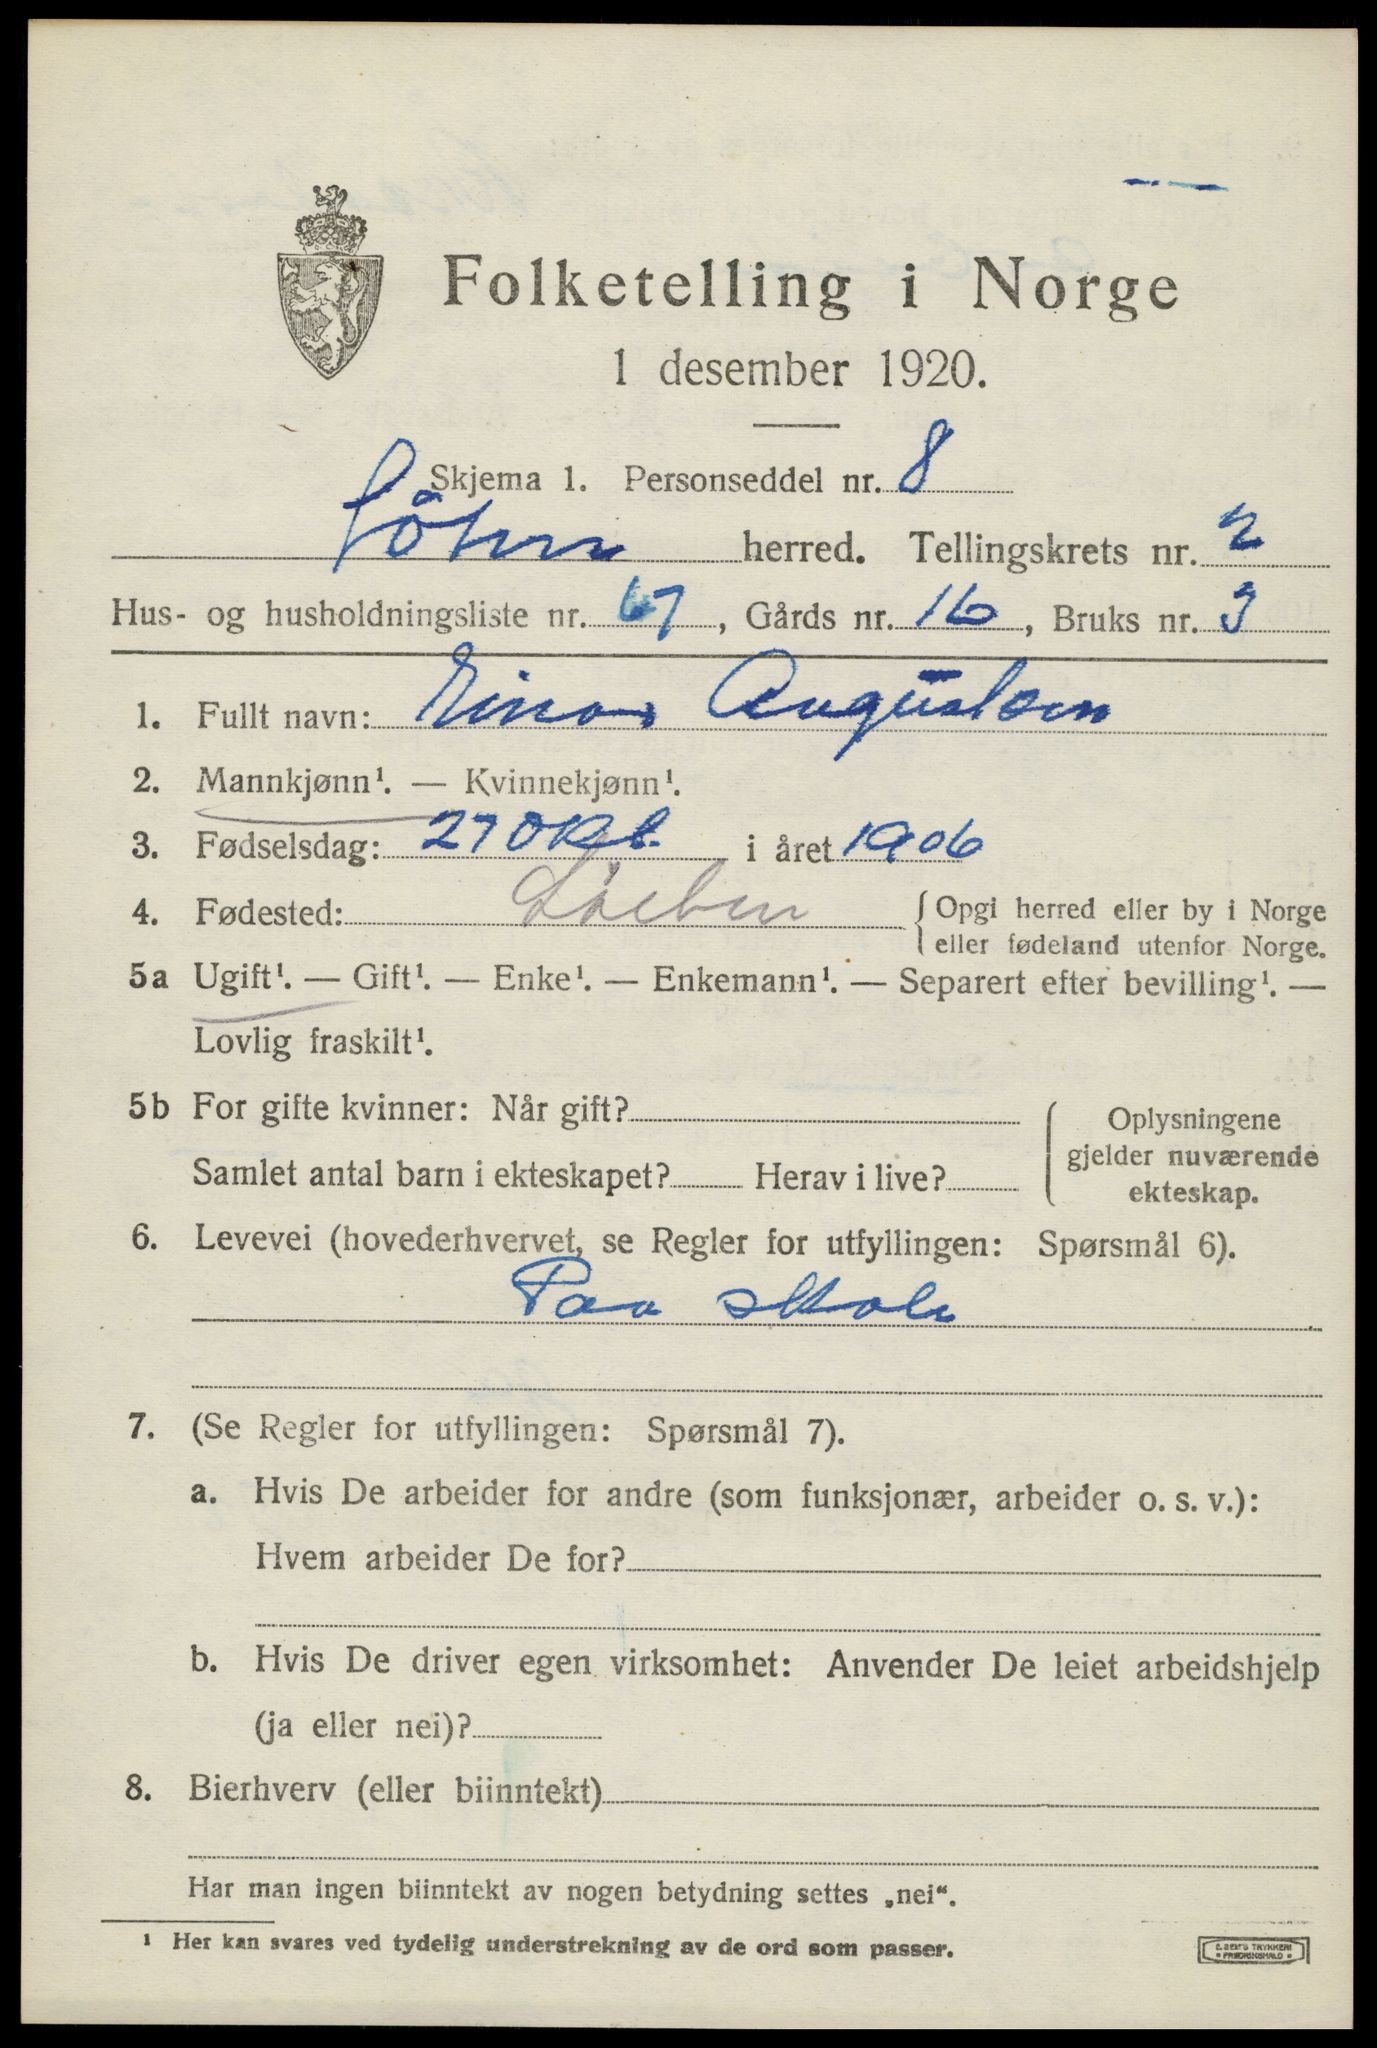 Folketelling i Norge
1 desember 1920.
Skjema 1. Personseddel nr. 8
herred. Tellingskrets nr. 2
Hus- og husholdningsliste nr. 67, Gårds nr. 16, Bruks nr. 3
1. Fullt navn: Einar Augustsen
2. Mannkjønn¹. — Kvinnekjønn¹.
3. Fødselsdag: 27 Okt. i året 1906
4. Fødested: { Opgi herred eller by i Norge
eller fødeland utenfor Norge.
5a Ugift¹. — Gift¹. — Enke¹. — Enkemann¹. — Separert efter bevilling¹. —
Lovlig fraskilt¹.
5b For gifte kvinner: Når gift?
Samlet antal barn i ekteskapet? Herav i live?
Oplysningene
gjelder nuværende
ekteskap.
6. Levevei (hovederhvervet, se Regler for utfyllingen: Spørsmål 6).
Paa skole
7. (Se Regler for utfyllingen: Spørsmål 7).
a. Hvis De arbeider for andre (som funksjonær, arbeider o. s. v.):
Hvem arbeider De for?
b. Hvis De driver egen virksomhet: Anvender De leiet arbeidshjelp
(ja eller nei)?
8. Bierhverv (eller biinntekt)
Har man ingen biinntekt av nogen betydning settes „nei“.
¹ Her kan svares ved tydelig understrekning av de ord som passer.